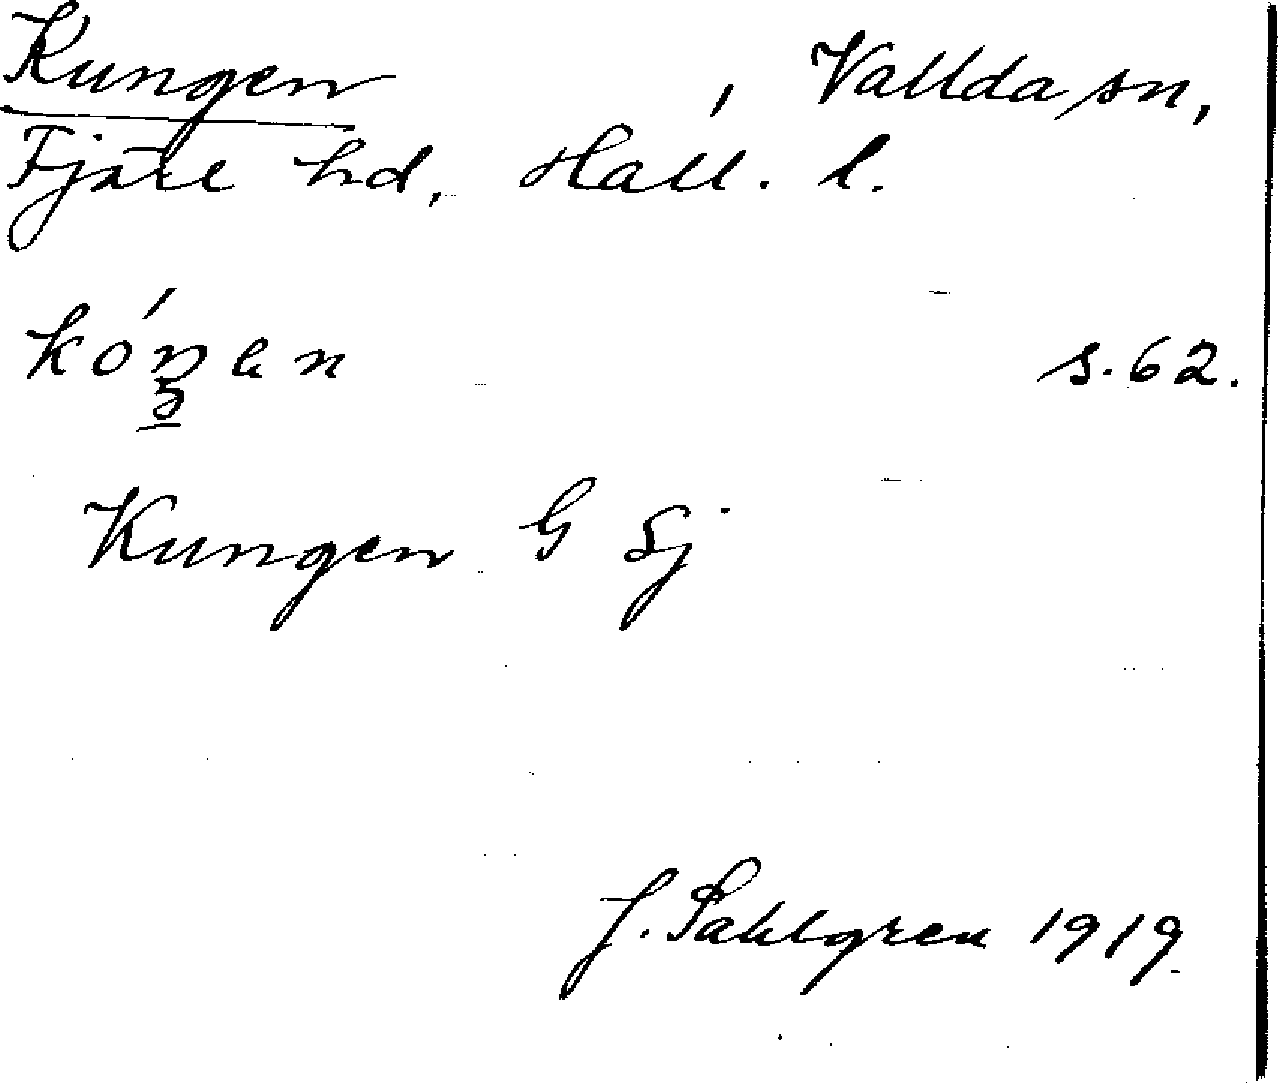 Kungen , Vallda sn,
Fjäre hd, Hall. l.
s. 62.
Kungen G Sj
J. Sahlgren 1919